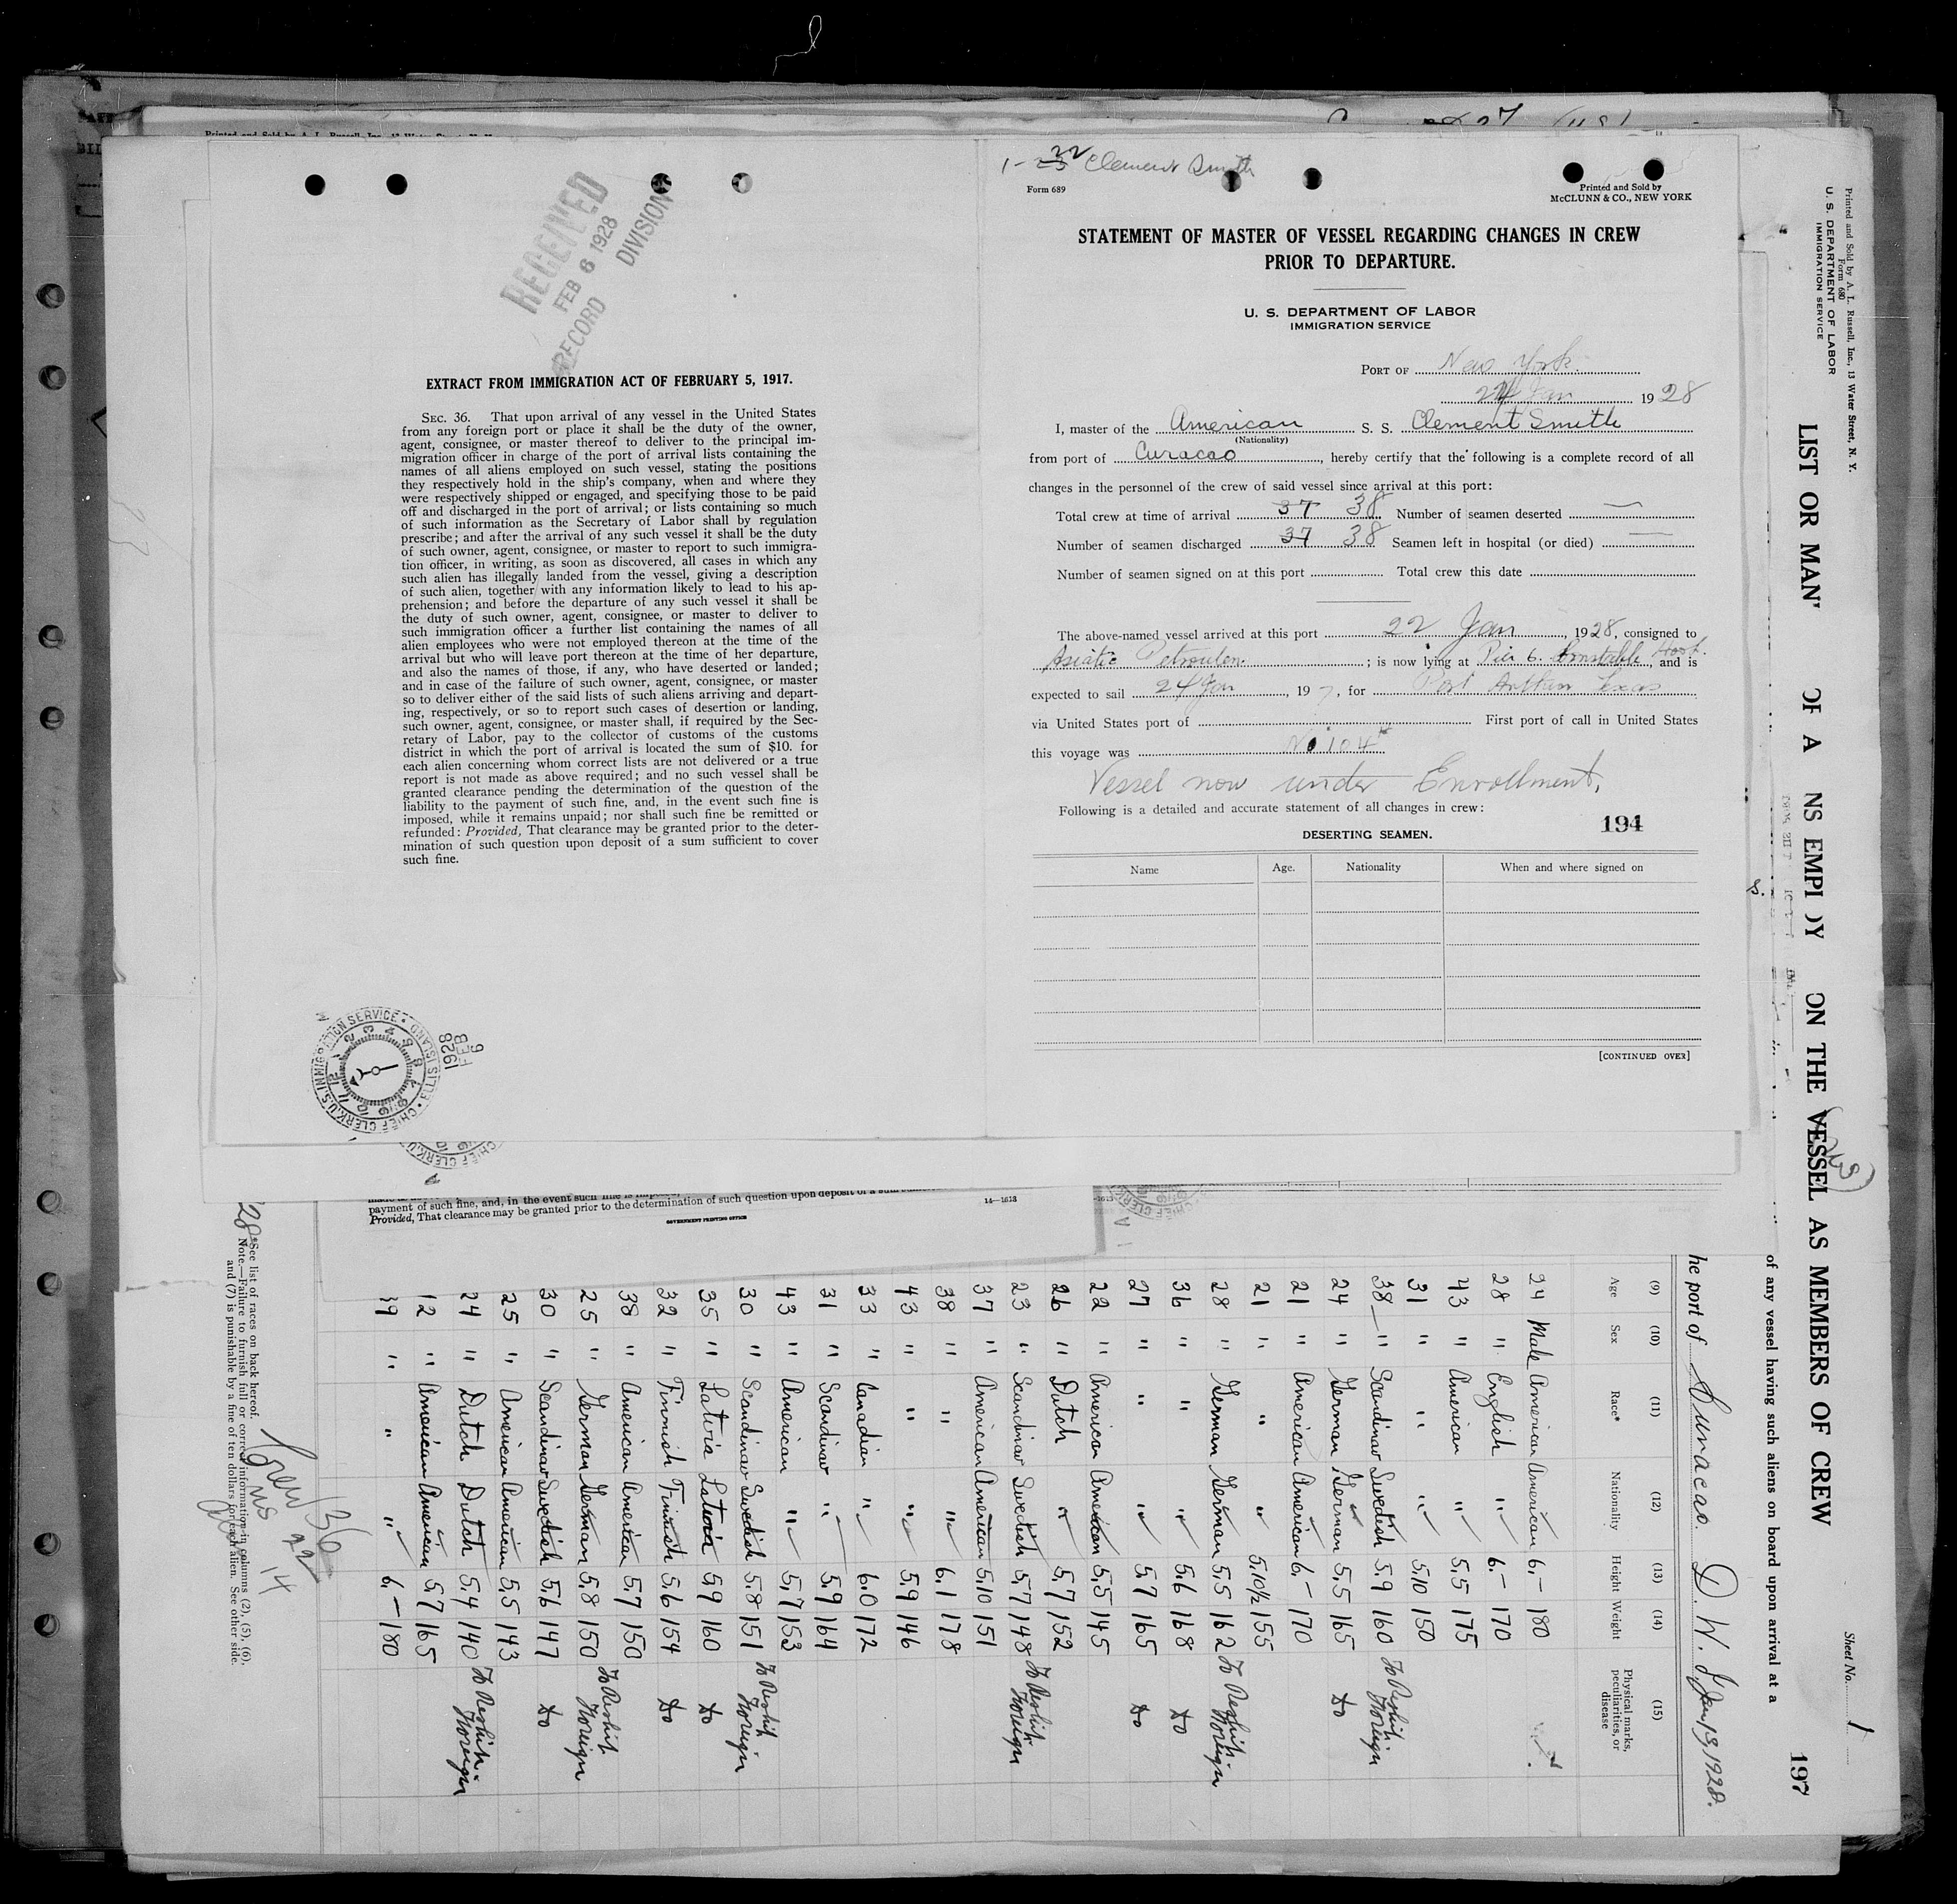 RECEIVED
FEB 6 1928
RECORD DIVISION
EXTRACT FROM IMMIGRATION ACT OF FEBRUARY 5, 1917.
SEC. 36. That upon arrival of any vessel in the United States
from any foreign port or place it shall be the duty of the owner,
agent, consignee, or master thereof to deliver to the principal im-
migration officer in charge of the port of arrival lists containing the
names of all aliens employed on such vessel, stating the positions
they respectively hold in the ship's company, when and where they
were respectively shipped or engaged, and specifying those to be paid
off and discharged in the port of arrival; or lists containing so much
of such information as the Secretary of Labor shall by regulation
prescribe; and after the arrival of any such vessel it shall be the duty
of such owner, agent, consignee, or master to report to such immigra-
tion officer, in writing, as soon as discovered, all cases in which any
such alien has illegally landed from the vessel, giving a description
of such alien, together with any information likely to lead to his ap-
prehension; and before the departure of any such vessel it shall be
the duty of such owner, agent, consignee, or master to deliver to
such immigration officer a further list containing the names of all
alien employees who were not employed thereon at the time of the
arrival but who will leave port thereon at the time of her departure,
and also the names of those, if any, who have deserted or landed;
and in case of the failure of such owner, agent, consignee, or master
so to deliver either of the said lists of such aliens arriving and depart-
ing, respectively, or so to report such cases of desertion or landing,
such owner, agent, consignee, or master shall, if required by the Sec-
retary of Labor, pay to the collector of customs of the customs
district in which the port of arrival is located the sum of $10. for
each alien concerning whom correct lists are not delivered or a true
report is not made as above required; and no such vessel shall be
granted clearance pending the determination of the question of the
liability to the payment of such fine, and, in the event such fine is
imposed, while it remains unpaid; nor shall such fine be remitted or
refunded: Provided, That clearance may be granted prior to the deter-
mination of such question upon deposit of a sum sufficient to cover
such fine.
CHIEF CLERK, U.S. IMMIGRATION SERVICE • ELLIS ISLAND
1928 FEB 6
1-22 Clement Smith
Form 689
Printed and Sold by
McCLUNN & CO., NEW YORK
STATEMENT OF MASTER OF VESSEL REGARDING CHANGES IN CREW
PRIOR TO DEPARTURE.
U. S. DEPARTMENT OF LABOR
IMMIGRATION SERVICE
PORT OF New York
24 Jan 1928
I, master of the American S. S. Clement Smith
(Nationality)
from port of Curacao, hereby certify that the following is a complete record of all
changes in the personnel of the crew of said vessel since arrival at this port:
Total crew at time of arrival 37 38 Number of seamen deserted —
Number of seamen discharged 37 38 Seamen left in hospital (or died) —
Number of seamen signed on at this port Total crew this date
The above-named vessel arrived at this port 22 Jan, 1928, consigned to
Asiatic Petroulem; is now lying at Pier 6 Constable Hook, and is
expected to sail 24 Jan, 19 , for Port Arthur Texas
via United States port of First port of call in United States
this voyage was
Vessel now under Enrollment.
Following is a detailed and accurate statement of all changes in crew:
194
DESERTING SEAMEN.
Name Age. Nationality When and where signed on
[CONTINUED OVER]
payment of such fine, and, in the event such fine is
Provided, That clearance may be granted prior to the determination of such question upon deposit of a sum
14—1613
GOVERNMENT PRINTING OFFICE
Printed and Sold by A. L. Russell, Inc., 13 Water Street, N. Y.
Form 680
U. S. DEPARTMENT OF LABOR
IMMIGRATION SERVICE
LIST OR MAN OF A NS EMPL OY ON THE VESSEL AS MEMBERS OF CREW
Sheet No. 1
197
of any vessel having such aliens on board upon arrival at a
he port of Curacao. Jan 13, 1928.
(9) (10) (11) (12) (13) (14) (15)
Age Sex Race* Nationality Height Weight Physical marks, peculiarities, or disease
24 Male American American 6,- 180
28 " English " 6,- 170
43 " American " 5,5 175
31 " " " 5,10 150
38 " Scandinav Swedish 5,9 160 To Reship Foreign
24 " German German 5,5 165 do
21 " American American 6,- 170
21 " " " 5,10½ 155
28 " German German 5,5 162 To Reship Foreign
36 " " " 5,6 168 do
27 " " " 5,7 165 do
22 " American American 5,5 145
26 " Dutch " 5,7 152
23 " Scandinav Swedish 5,7 148 To Reship Foreign
37 " American American 5,10 151
38 " " " 6,1 178
43 " " " 5,9 146
33 " Canadian " 6,0 172
31 " Scandinav " 5,9 164
43 " American " 5,7 153
30 " Scandinav Swedish 5,8 151 To Reship Foreign
35 " Latvia Latvia 5,9 160 do
32 " Finnish Finnish 5,6 154 do
38 " American American 5,7 150
25 " German German 5,8 150 To Reship Foreign
30 " Scandinav Swedish 5,6 147 do
25 " American American 5,5 143
24 " Dutch Dutch 5,4 140 To Reship Foreign
" American American 5,7 165
39 " " " 6,- 180
*See list of races on back hereof.
Note.—Failure to furnish full or correct information in columns (2), (5), (6),
and (7) is punishable by a fine of ten dollars for each alien. See other side.
Crew 36
us 22
14